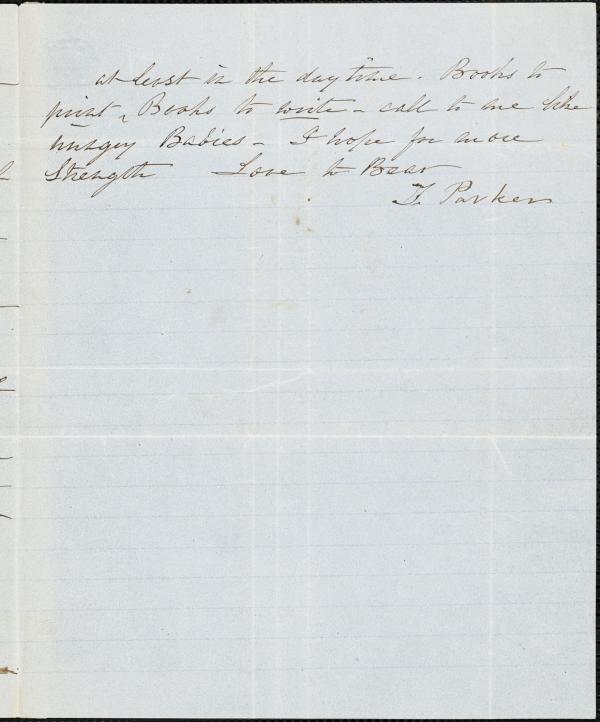 at least in the day time. Books to
print, Books to write - call to me like
hungry Babies - I hope for more
Strength Love to Bear
T. Parker